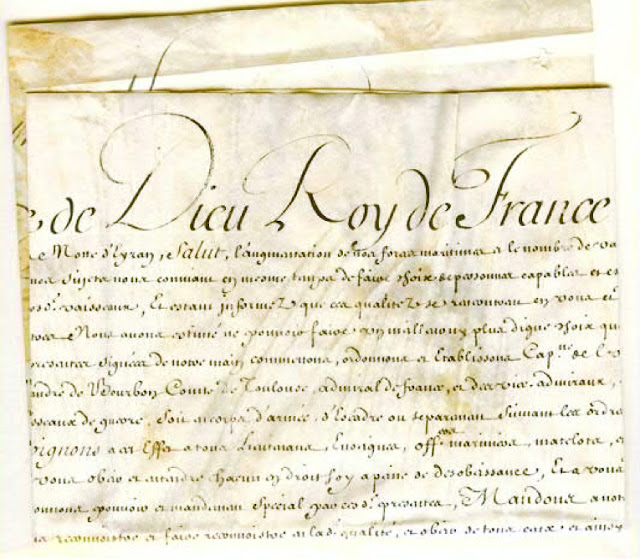 de Dieu Roy de France
Salut, l'augmentation de nos forces maritimes et le nombre de
nos sujets nous conviant en mesme temps de faire choix de personnes capables et
vaisseaux, Et estant informez que ces qualitez se rencontrent en vous
Nous avons estimé ne pouvoir faire un meilleur ny plus digne choix
signées de notre main commettons, ordonnons et Establissons Cap.ne de
de Bourbon Comte de Toulouse, admiral de france, et des vice admiraux,
de guerre, soit en corps d'armée, d'Escadre ou separement suivant les ordres
a cet Effet a tous Lieutenans, Enseignes, off.ers mariniers, matelots,
vous obeir et entendre chacun en droit soy a paine de desobeissance, Et a vous
pouvoir et mandement special par ces d. presentes, Mandons a
reconnoistre et faire reconnoistre en lad. qualité, et obeir de tous ceux et